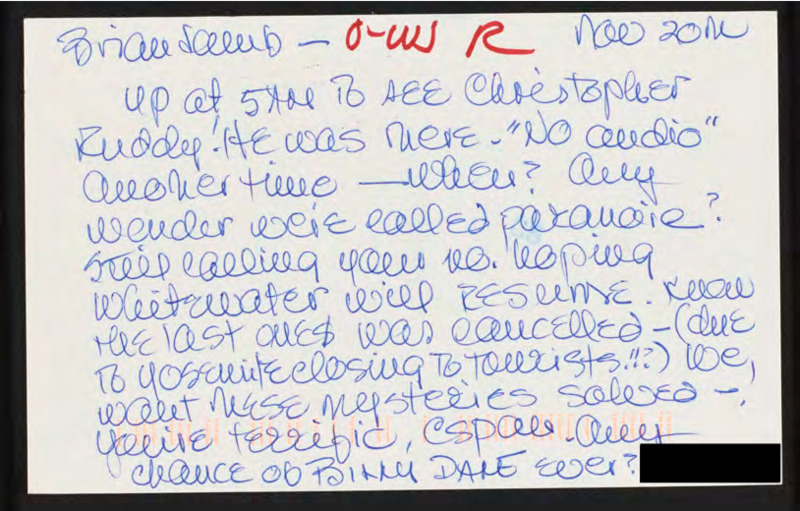 Brian Lamb — O-W R Nov 20th
Up at 5AM To SEE Christopher
Ruddy! HE was there - "NO audio"
another time — when? Any
wonder we're called paranoic?
Still calling your no. hoping
Whitewater will RESUME. Know
the last ones was cancelled - (due
To Yosemite closing To Tourists.!!?) We,
want these mysteries solved -,
You're terrific, Cspan - any
chance of Billy DALE ever?